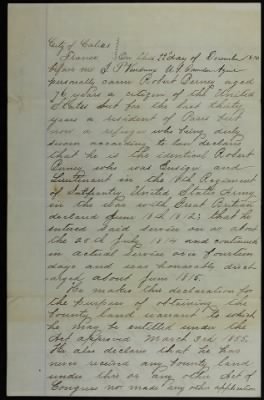 City of Calais
France } On this 22 day of December 1870
before me J. P. Vendroux U.S. Consular Agent
personally came Robert Berney aged
76 years a citizen of the United
States but for the last thirty
years a resident of Paris but
now a refugee who being duly
sworn according to law declares
that he is the identical Robert
Berney who was Ensign and
Lieutenant in the Regiment
of Infantry, United States Army
in the war with Great Britain
declared June 18th 1812; that he
entered said service on or about
the 28th July 1814 and continued
in actual service over fourteen
days and was honorably disch-
arged about June 1815.
He makes this declaration for
the purpose of obtaining the
bounty land warrant to which
he may be entitled under the
Act approved March 3rd 1855.
He also declares that he has
never received any bounty land
under this or any other Act of
Congress no made any other application